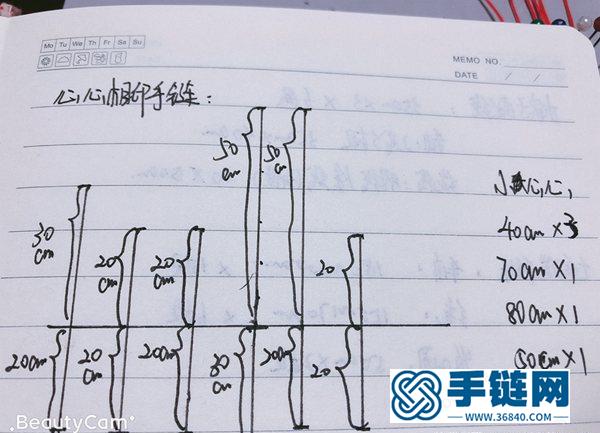 Mo Tu We Th Fr Sa Su
MEMO NO.
DATE / /
心心相印手链:
50cm
50cm
30cm
20cm
20cm
20
20cm
20cm
20cm
30cm
20cm
20
小心心
40cm×3
70cm×1
80cm×1
50cm×1
BeautyCam
手链网
WWW.36840.COM